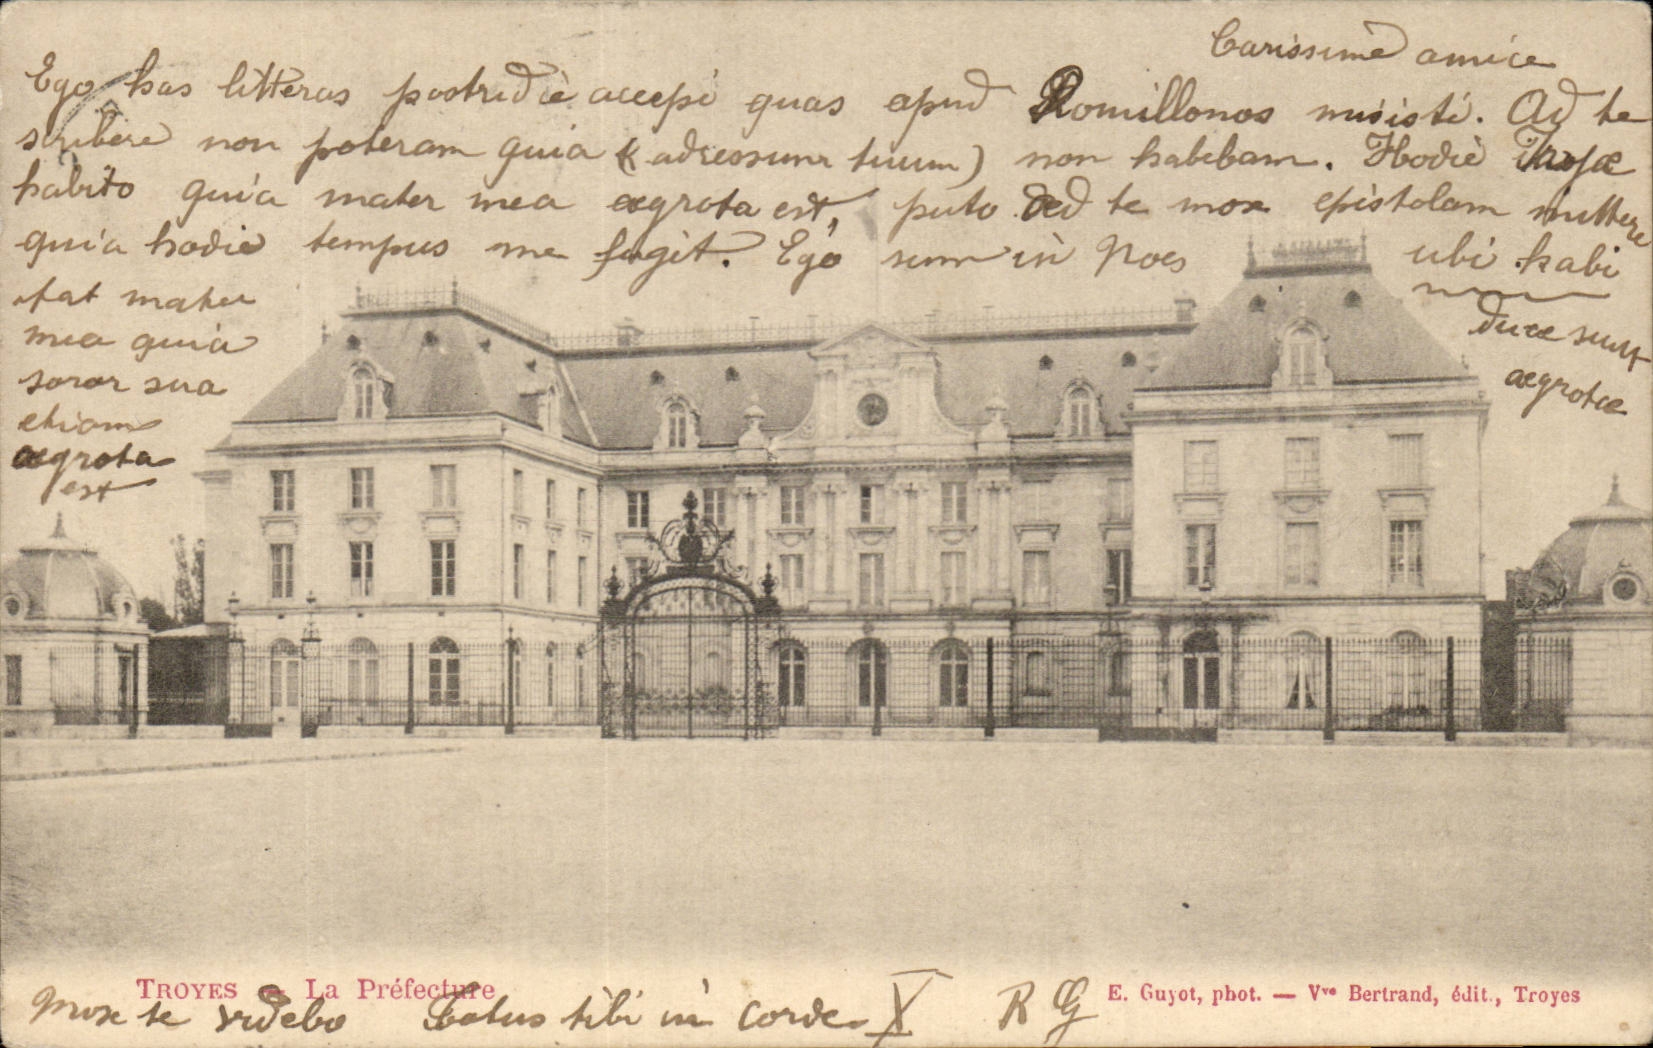 Carissime amice
Ego has litteras postridie accepi quas apud Romillonos misisti. Ad te
scribere non poteram quia (adressum tuum) non habebam. Hodiè
habito quia mater mea aegrota est, puto ad te mox epistolam mittere
quia hodie tempus me fugit. Ego sum in Noes ubi habi
tat mater
mea quia
soror sua
etiam
aegrota
est
duae sunt
aegrotae
TROYES - La Préfecture
E. Guyot, phot. — Vve Bertrand, édit., Troyes
Mox te videbo Totus tibi in corde X R G